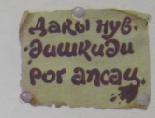 Дакы нув.
Дишкиди
рог апсац.